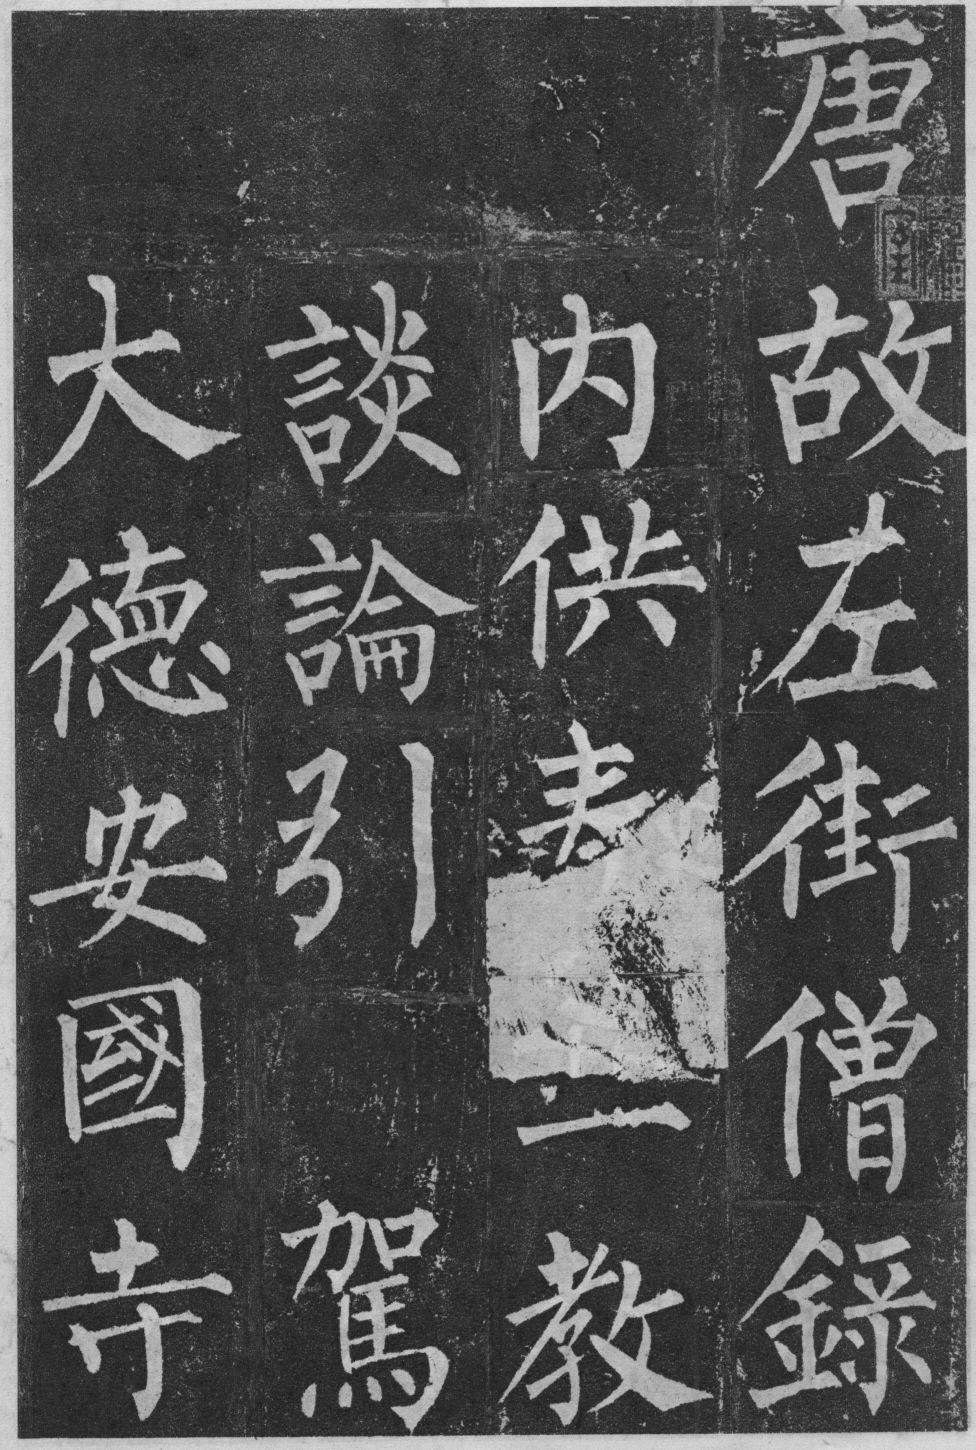 唐故左街僧錄
内供奉三教
談論引駕
大德安國寺